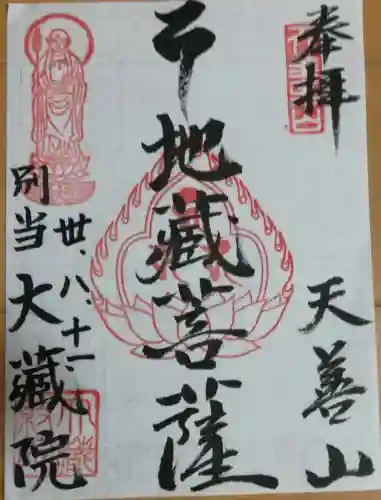 奉拝
天善山
地藏菩薩
廿、八、十一、
別当
大藏院